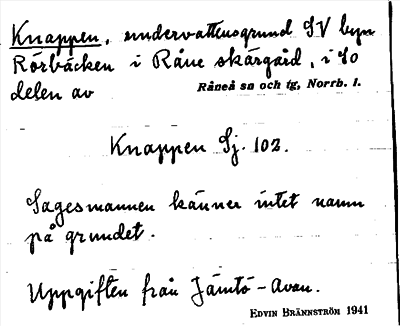 Knappen, undervattensgrund SV byn
Rörbäcken i Råne skärgård, i SO
delen av
Råneå sn och tg, Norrb. l.
Knappen Sj. 102.
Sagesmannen känner intet namn
på grundet.
Uppgiften från Jämtö-Avan.
EDVIN BRÄNNSTRÖM 1941